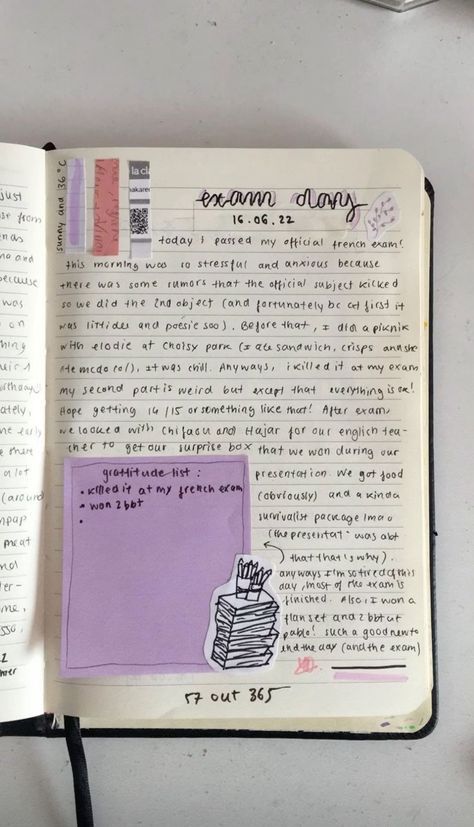 just
because
was
on
thing
birthday
ately,
early
there
a lot
(around
meat
and
me,
sunny and 36°C
la cla
makare
exam diary
16.06.22
today i passed my official french exam!
this morning was so stressful and anxious because
there was some rumors that the official subject kicked
so we did the 2nd object (and fortunately bc at first it
was littides and poésie soo). Before that, i did a piknik
with elodie at choisy park (i ate sandwich, crisps and she
ate mcdo), it was chill. Anyways, i killed it at my exam
my second part is weird but except that everything is ok!
Hope getting 14/15 or something like that! After exam,
we looked with and Hajar for our english tea-
cher to get our surprise box that we won during our
presentation. We got food
(obviously) and a kinda
survivalist package lmao
(the presentat° was abt
that that's why).
anyways I'm so tired of this
day, most of the exam is
finished. Also, I won a
flan set and 2 bbt at
pable! such a good new to
end the day (and the exam)
grattitude list :
• killed it at my french exam
• won 2 bbt
•
57 out 365